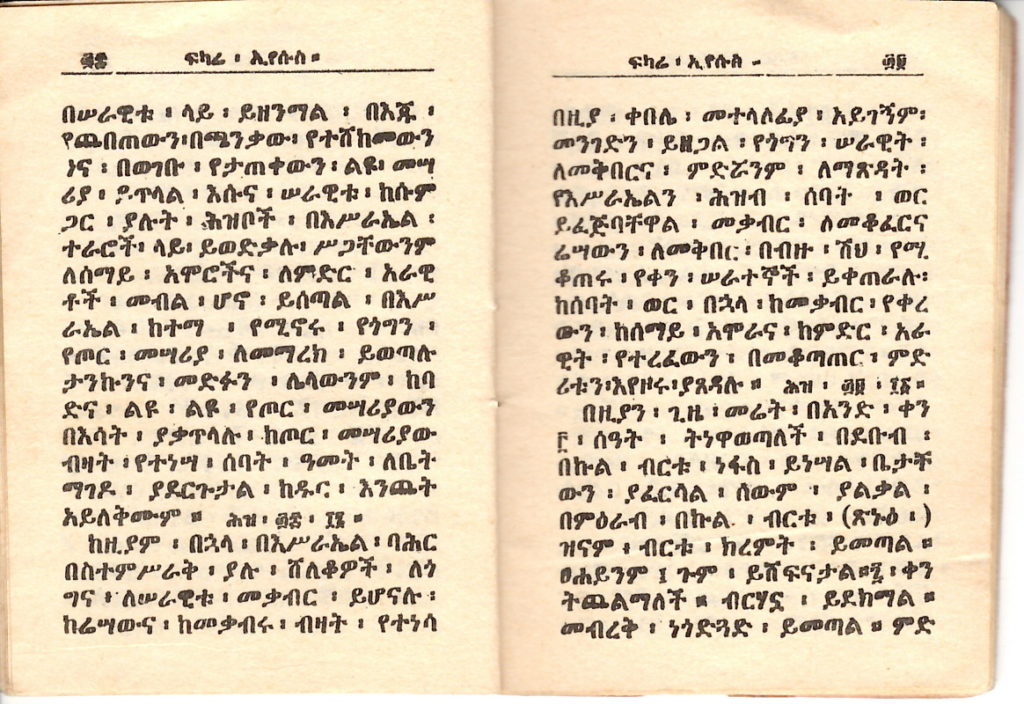 ፴፰ ፍካሬ ፡ ኢየሱስ ።
በሠራዊቱ ፡ ላይ ፡ ይዘንማል ፡ በእጁ ፡
የጨበጠውን ፡ በጫንቃው ፡ የተሸከመውን
ና ፡ በወገቡ ፡ የታጠቀውን ፡ ልዩ ፡ መሣ
ሪያ ፡ ይጥላል ፡ እሱና ፡ ሠራዊቱ ፡ ከሱም
ጋር ፡ ያሉት ፡ ሕዝቦች ፡ በእሥራኤል ፡
ተራሮች ፡ ላይ ፡ ይወድቃሉ ፡ ሥጋቸውንም
ለሰማይ ፡ አሞሮችና ፡ ለምድር ፡ አራዊ
ቶች ፡ መብል ፡ ሆኖ ፡ ይሰጣል ፡ በእሥ
ራኤል ፡ ከተማ ፡ የሚኖሩ ፡ የጎግን ፡
የጦር ፡ መሣሪያ ፡ ለመማረክ ፡ ይወጣሉ
ታንኩንና ፡ መድፉን ፡ ሌላውንም ፡ ከባ
ድና ፡ ልዩ ፡ ልዩ ፡ የጦር ፡ መሣሪያውን
በእሳት ፡ ያቃጥላሉ ፡ ከጦር ፡ መሣሪያው
ብዛት ፡ የተነሣ ፡ ሰባት ፡ ዓመት ፡ ለቤት
ማገዶ ፡ ያደርጉታል ፡ ከዱር ፡ እንጨት
አይለቅሙም ። ሕዝ ፡ ፴፰ ፡ ፲፯ ።
ከዚያም ፡ በኋላ ፡ በእሥራኤል ፡ ባሕር
በስተምሥራቅ ፡ ያሉ ፡ ሸለቆዎች ፡ ለጎ
ግና ፡ ለሠራዊቱ ፡ መቃብር ፡ ይሆናሉ ፡
ከሬሣውና ፡ ከመቃብሩ ፡ ብዛት ፡ የተነሳ
ፍካሬ ፡ ኢየሱስ ። ፴፱
በዚያ ፡ ቀበሌ ፡ መተላለፊያ ፡ አይገኝም ፡
መንገድን ፡ ይዘጋል ፡ የጎግን ፡ ሠራዊት ፡
ለመቅበርና ፡ ምድሯንም ፡ ለማጽዳት ፡
የእሥራኤልን ፡ ሕዝብ ፡ ሰባት ፡ ወር
ይፈጅባቸዋል ፡ መቃብር ፡ ለመቆፈርና
ሬሣውን ፡ ለመቅበር ፡ በብዙ ፡ ሽህ ፡ የሚ
ቆጠሩ ፡ የቀን ፡ ሠራተኞች ፡ ይቀጠራሉ ፡
ከሰባት ፡ ወር ፡ በኋላ ፡ ከመቃብር ፡ የቀረ
ውን ፡ ከሰማይ ፡ አሞራና ፡ ከምድር ፡ አራ
ዊት ፡ የተረፈውን ፡ በመቆጣጠር ፡ ምድ
ሪቱን ፡ እየዞሩ ፡ ያጸዳሉ ። ሕዝ ፡ ፴፱ ፡ ፲፮ ።
በዚያን ፡ ጊዜ ፡ መሬት ፡ በአንድ ፡ ቀን
፫ ፡ ሰዓት ፡ ትነዋወጣለች ፡ በደቡብ ፡
በኩል ፡ ብርቱ ፡ ነፋስ ፡ ይነሣል ፡ ቤታቸ
ውን ፡ ያፈርሳል ፡ ሰውም ፡ ያልቃል ፡
በምዕራብ ፡ በኩል ፡ ብርቱ ፡ (ጽኑዕ ፡ )
ዝናም ፡ ብርቱ ፡ ክረምት ፡ ይመጣል ።
ፀሐይንም ፤ ጉም ፡ ይሸፍናታል ። ፯ ፡ ቀን
ትጨልማለች ። ብርሃኗ ፡ ይደክማል ።
መብረቅ ፡ ነጎድጓድ ፡ ይመጣል ። ምድ